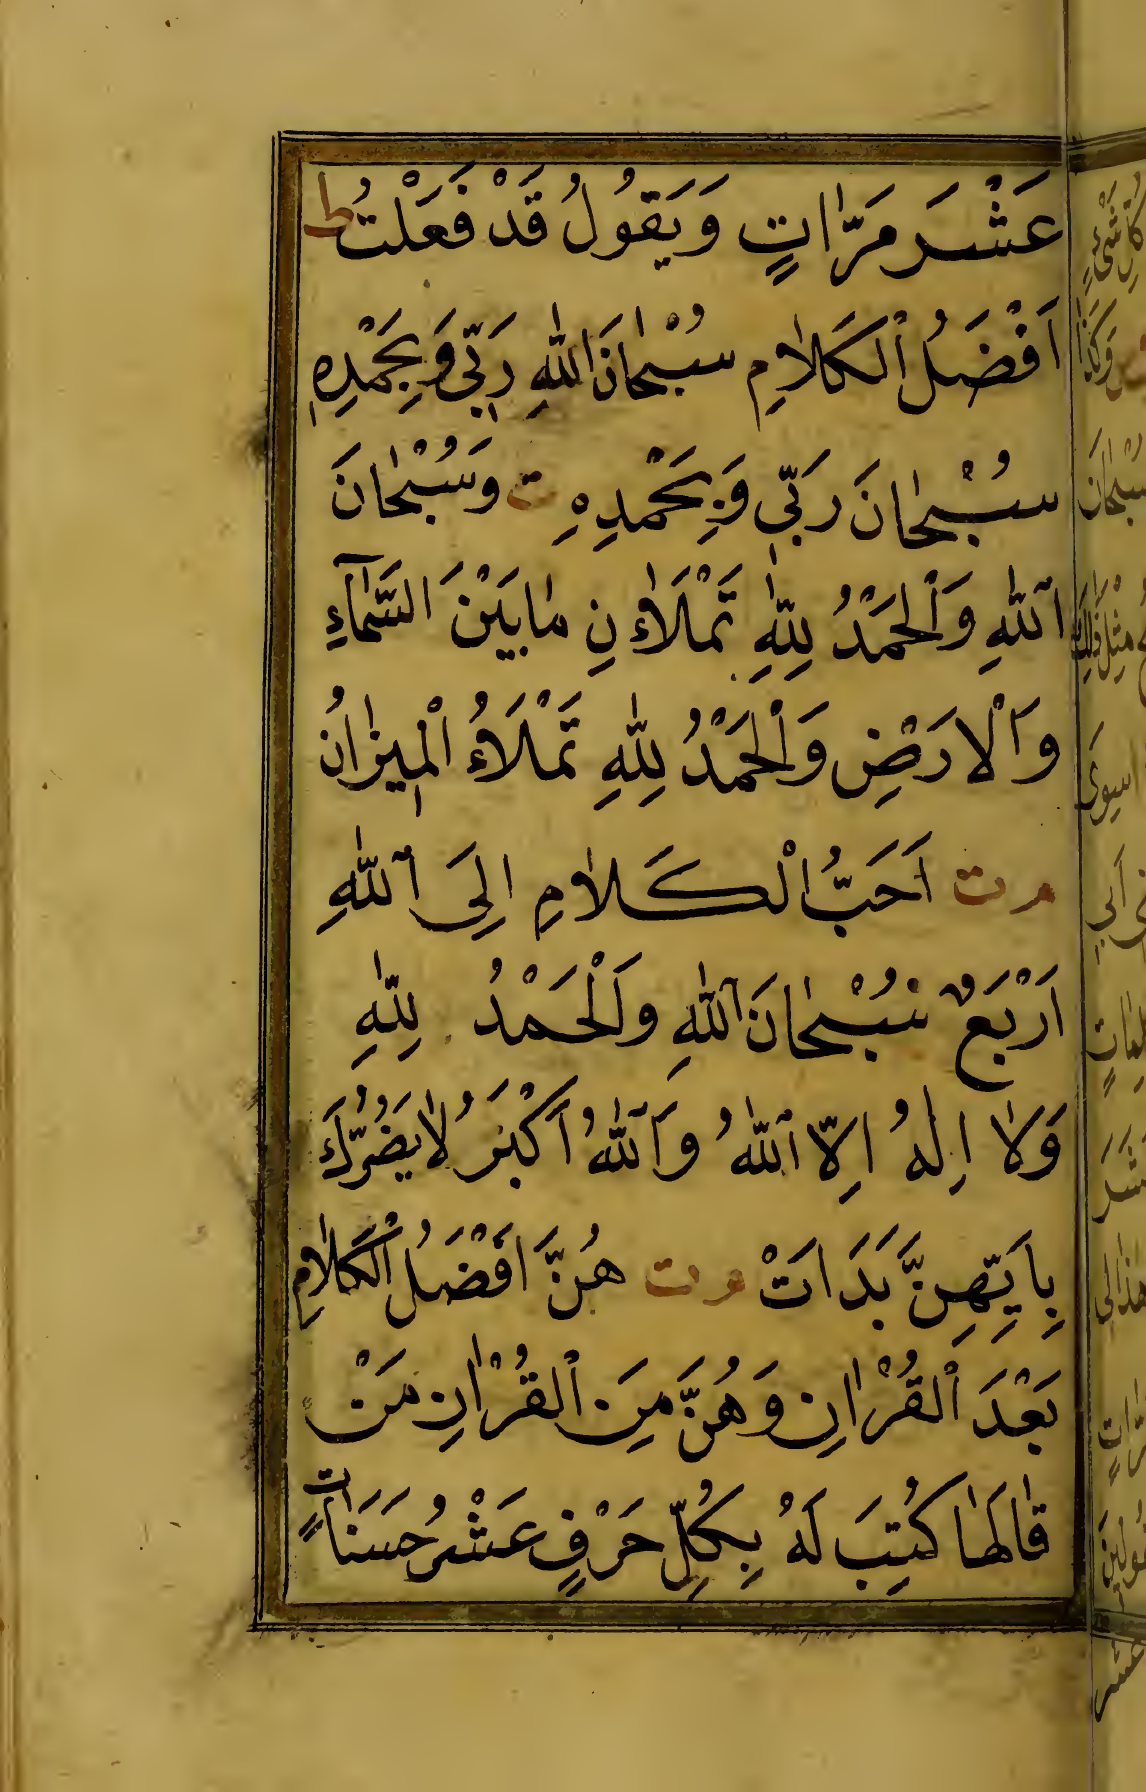 عَشْرَ مَرَّاتٍ وَيَقُولُ قَدْ فَعَلْتُ ط
اَفْضَلُ الْكَلَامِ سُبْحَانَ اللّٰهِ رَبِّى وَبِحَمْدِهِ
سُبْحَانَ رَبِّى وَبِحَمْدِهِ ت وَسُبْحَانَ
اللّٰهِ وَالْحَمْدُ لِلّٰهِ تَمْلَاٰنِ مَابَيْنَ السَّمَآءِ
وَالْاَرْضِ وَالْحَمْدُ لِلّٰهِ تَمْلَاُ الْمِيزَانُ
م ت اَحَبُّ الْكَلَامِ اِلَى اللّٰهِ
اَرْبَعٌ سُبْحَانَ اللّٰهِ وَالْحَمْدُ لِلّٰهِ
وَلَا اِلٰهَ اِلَّا اللّٰهُ وَاللّٰهُ اَكْبَرُ لَا يَضُرُّكَ
بِاَيِّهِنَّ بَدَاتَ م ت هُنَّ اَفْضَلُ الْكَلَامِ
بَعْدَ الْقُرْاٰنِ وَهُنَّ مِنَ الْقُرْاٰنِ مَنْ
قَالَهَا كُتِبَ لَهُ بِكُلِّ حَرْفٍ عَشْرُ حَسَنَاتٍ